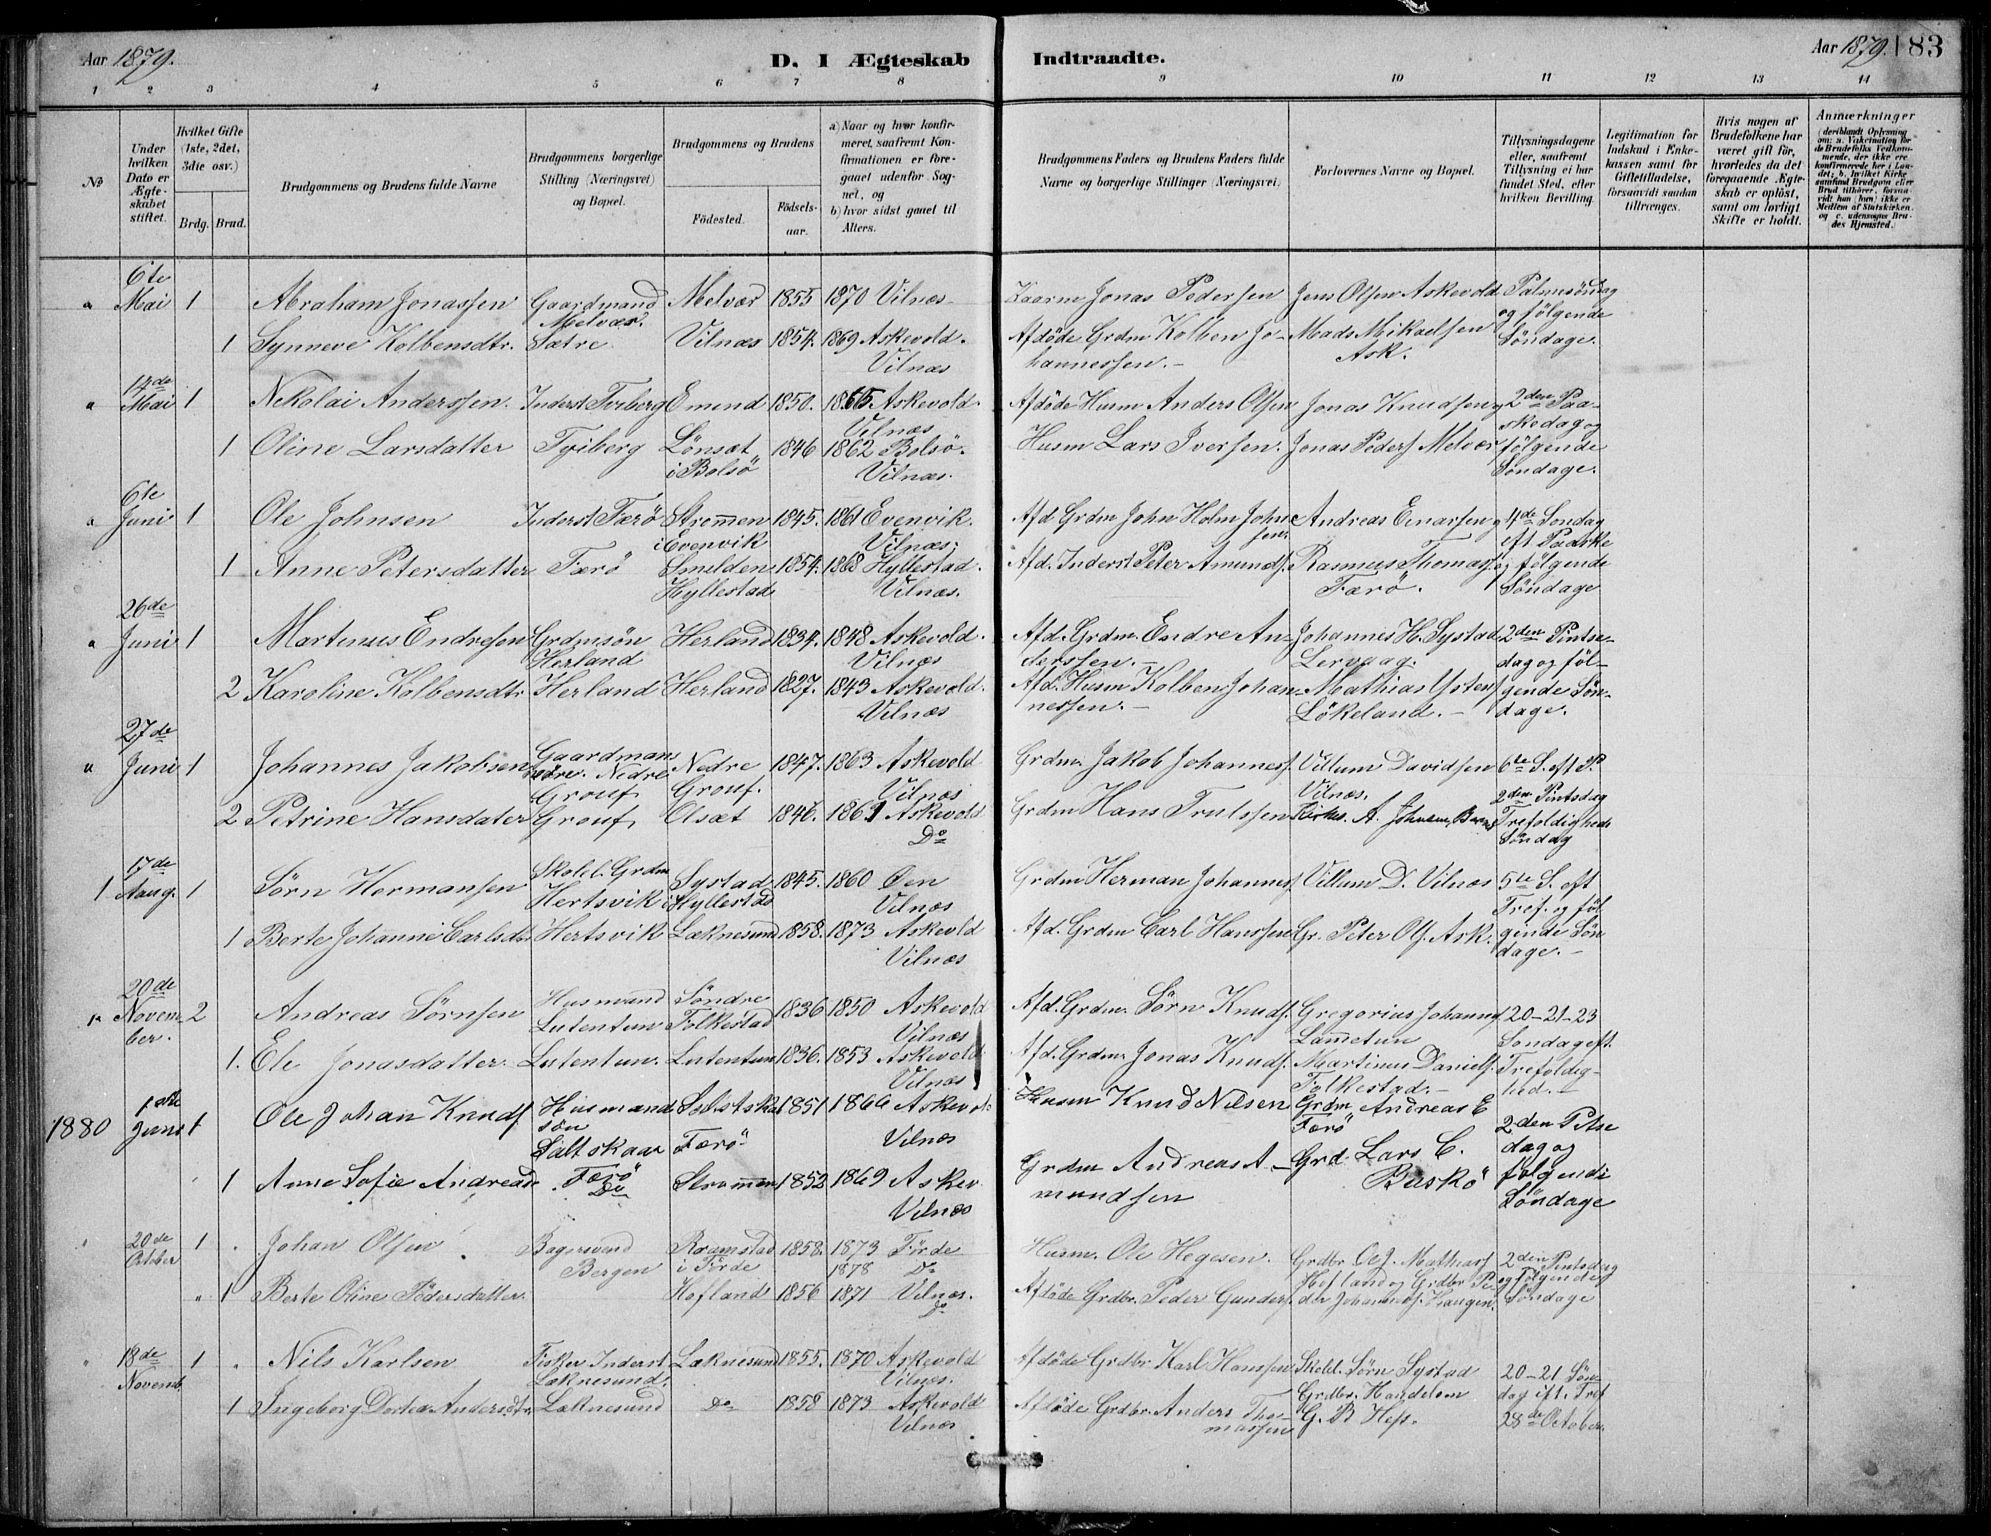 Aar 1879.
D. I Ægteskab Indtraadte.
Aar 1879. 183
1 2 3 4 5 6 7 8 9 10 11 12 13 14
No
Under hvilken Dato er Ægteskabet stiftet.
Hvilket Gifte (1ste, 2det, 3die osv.)
Brdg. Brud.
Brudgommens og Brudens fulde Navne
Brudgommens borgerlige Stilling (Næringsvei) og Bopæl.
Brudgommens og Brudens
Födested. Födsels-aar.
a) Naar og hvor konfirmeret, saafremt Konfirmationen er foregaaet udenfor Sognet, og
b) hvor sidst gaaet til Alters.
Brudgommens Faders og Brudens Faders fulde Navne og borgerlige Stillinger (Næringsvei)
Forlovernes Navne og Bopæl.
Tillysningsdagene eller, saafremt Tillysning ei har fundet Sted, efter hvilken Bevilling.
Legitimation for Indskud i Enkekassen samt for Giftetilladelse, forsaavidt saadan tiltrænges.
Hvis nogen af Brudefolkene har været gift før, hvorledes da det foregaaende Ægteskab er opløst, samt om lovligt Skifte er holdt.
Anmærkninger
(deriblandt Oplysning om: a. Vakcination for de Brudefolks Vedkommende, der ikke ere konfirmerede her i Landet; b. hvilket Kirkesamfund Brudgom eller Brud tilhører, forsaavidt han (hun) ikke er Medlem af Statskirken, og c. udensogns Brudes Hjemsted.)
6te Mai 1 Abraham Jonassen Gaardmand Melvær Melvær 1855 1870 Vilnæs Jonas Pedersen Jens Olsen Askevold Palmesöndag og følgende Söndage.
1 Synneve Kolbensdtr. Sætre Vilnæs 1854. 1869 Askevold. Vilnæs Afdöde Grdm Kolben Johannessen. Mads Mikaelsen Ask.
14de Mai 1 Nikolai Anderssen. Inderst Tviberg Emend 1850. 1865 Askevold. Vilnæs Afdöde Husm Anders Olsen Jonas Knudsen 2den Paaskedag og følgende Söndage.
1 Oline Larsdatter Tviberg Lönsæt i Bolsö 1846 1862 Bolsö. Vilnæs. Husm Lars Iversen. Jonas Peders Melvær
6te Juni 1 Ole Johnsen Inderst Færö Strømen i Evenvik 1845. 1861 Evenvik. Vilnæs. Afd Grdm John Holm Johnsen. Andreas Einarsen 4de Söndag eft Paaske og følgende Söndage
1 Anne Petersdatter Færö Smilden Hyllestad 1854. 1868 Hyllestad. Vilnæs. Afd. Inderst Peter Amunds. Rasmus Thomas. Færö.
26de Juni 1 Martinus Endresen Grdmsön Herland Herland 1834. 1848 Askevold. Vilnæs Afd. Grdm. Endre Anderssen. Johannes H. Systad Lervaag. 2den Pintsedag og følgende Söndage.
2 Karoline Kolbensdtr Herland Herland 1827. 1843 Askevold. Vilnæs Afd. Husm Kolben Johannessen. Mathias Lökeland.
27de Juni 1 Johannes Jakobsen Gaardman Nedre Grouf Nedre Grouf. 1847. 1863 Askevold Vilnæs Grdm. Jakob Johanness. Villum Davidsen Vilnæs. 6te S. eft P. 2den Pintsdag Trefoldigheds Söndag
2 Petrine Hansdater Grouf Olsæt 1846. 1861 Askevold Do Grdm Hans Trulssen Kirkes. A. Johnsen,
1 17de Aaug. 1 Sørn Hermansen Skolel. Grdm Hertsvik Systad i Hyllestad 1845. 1860 Øen Vilnæs Grdm Herman Johanness. Villum D. Vilnæs 5te S. eft Tref. og følgende Söndage.
1 Berte Johanne Carlsdtr Hertsvik Læknesund 1858. 1873 Askevold Vilnæs Afd. Grdm Carl Hanssen Gr. Peter Ols. Ask.
20de November. 2 Andreas Sørnsen Husmand Lutentun Söndre Folkestad 1836 1850 Askevold Vilnæs Afd. Grdm. Sørn Knuds. Gregorius Johann Lammetun 20-21-23 Söndag eft. Trefoldighed.
1. Ele Jonasdatter. Lutentun. Lutentun 1836. 1853 Askevold Vilnæs Afd. Grdm. Jonas Knuds. Martinus Daniels. Folkestad.
1880 1ste Juni 1 Ole Johan Knuds Husmands sön Saltskaar Færö 1851 1866 Askevol. Vilnæs Husm Knud Nilsen Grdm Andreas E Færö 2den Pitsedag og følgende Söndage
1 Anne Sofie Andreasd Færö Do Strommen 1852 1869 Askev. Vilnæs Grdm Andreas Amundsen Grd. Lars C. Buskö
20de October 1 Johan Olsen Bagersvend Bergen Ramstad i Förde 1858. 1873 Förde 1878 Do Husm. Ole Hegesen. Grdbr Mathias Hofland og Grdbr Peder Johanness. Haugen. 2den Pintsdag og følgende Söndage
1 Berte Oline Pedersdatter Hofland 1856 1871 Vilnæs. Do Afdöde Grdbr. Peder Gunders.
18de Novemb. 1 Nils Karlsen Fisker Inderst Læknesund. Læknesund 1855. 1870 Askevold Vilnæs. Afdöde Grdbr. Karl Hanssen Skolel. Sørn Systad 20-21 Söndag eft. Tref 28de October.
1 Ingeborg Dortea Andersdtr. Læknesund Do 1858 1873 Askevold Vilnæs Afdöde Grdbr. Anders Thomassen Grdbr. Handelsm G. R. Hess.